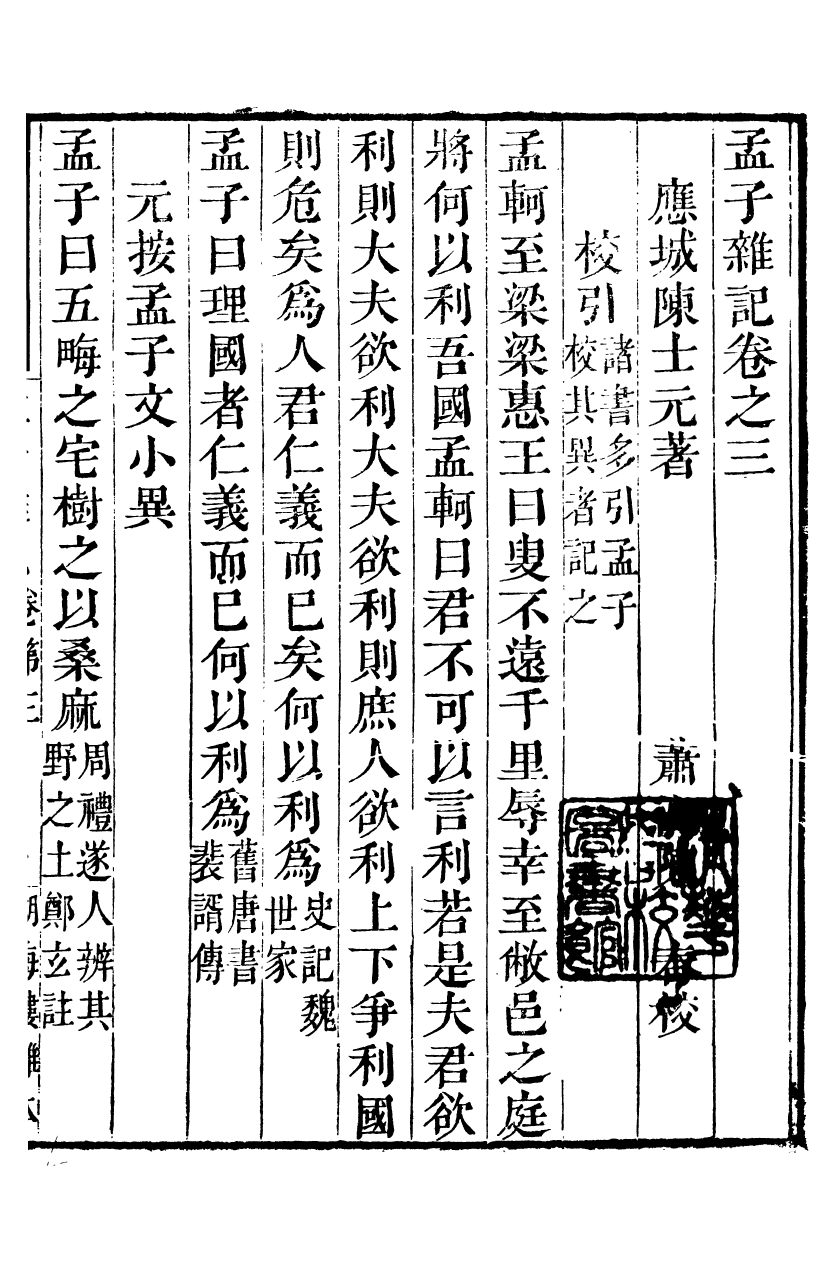 孟子雜記卷之三
應城陳士元著
蕭　校
校引諸書多引孟子校其異者記之
孟軻至梁梁惠王曰叟不遠千里辱幸至敝邑之庭
將何以利吾國孟軻曰君不可以言利若是夫君欲
利則大夫欲利大夫欲利則庶人欲利上下爭利國
則危矣爲人君仁義而已矣何以利爲史記魏世家
孟子曰理國者仁義而已何以利爲舊唐書裴諝傳
元按孟子文小異
孟子曰五畮之宅樹之以桑麻周禮遂人辨其野之土鄭玄註
卷第三
湖海樓雕本